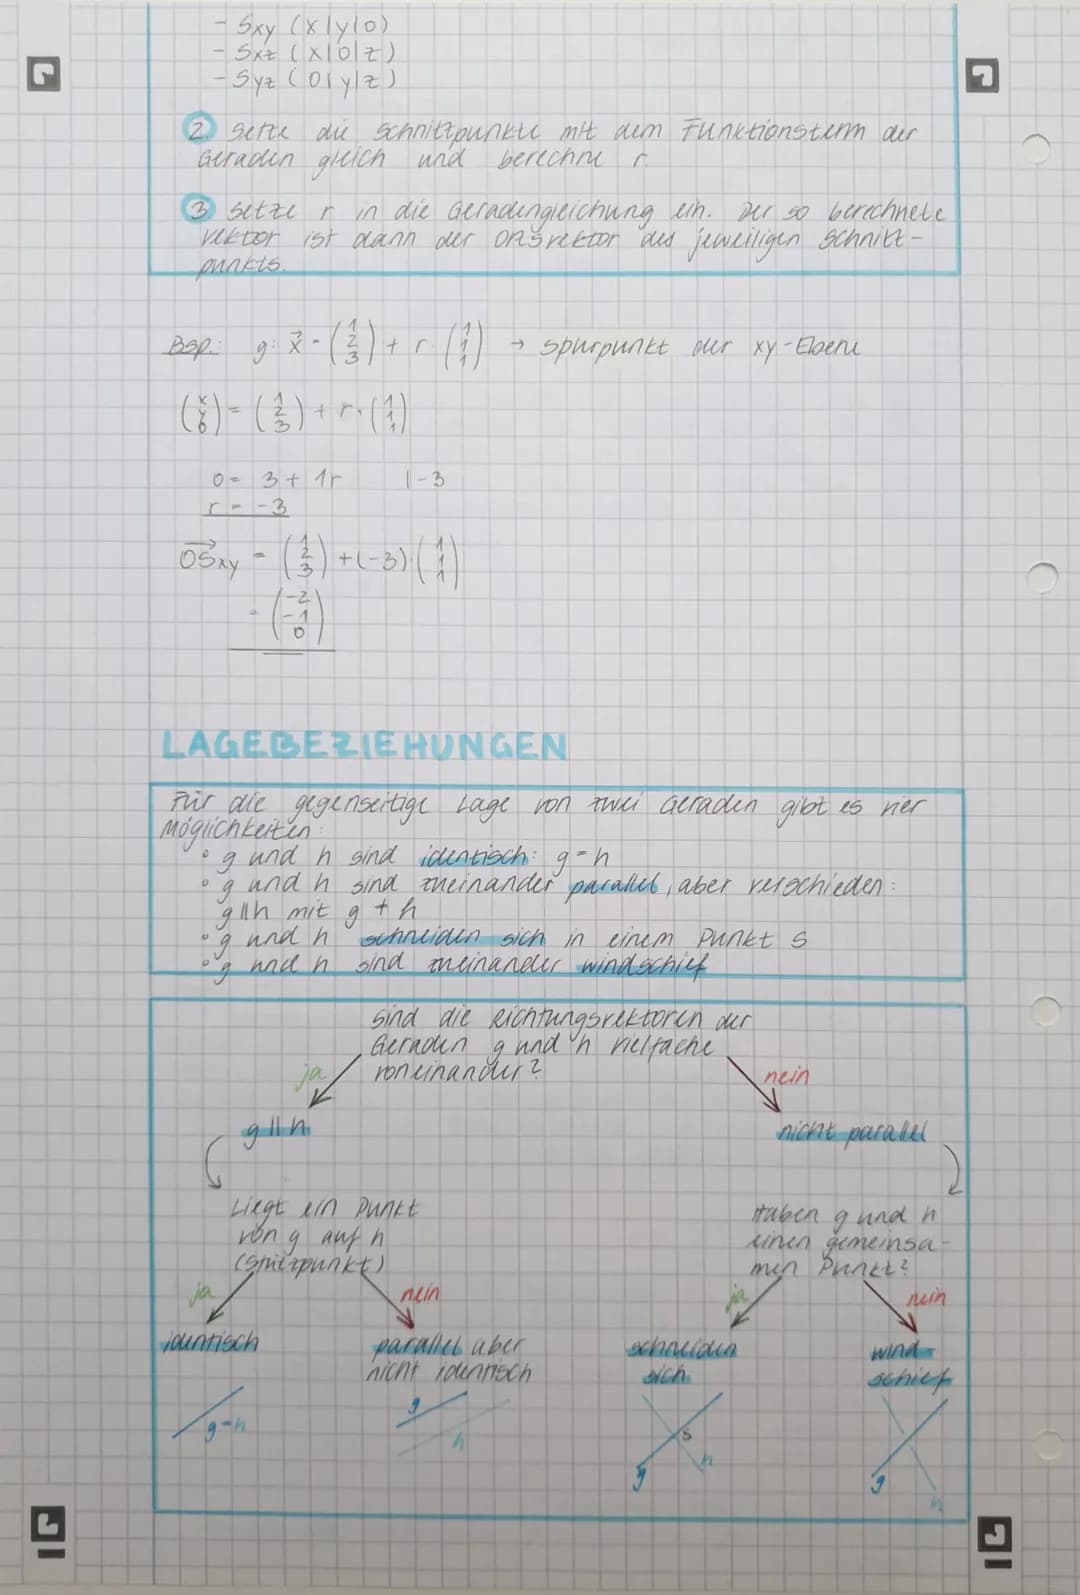 - Sxy (x|y|0)
- Sxz (x|0|z)
- Syz (0|y|z)
2. Setze die Schnittpunkte mit dem Funktionsterm der
Geraden gleich und berechne r.
3. Setze r in die Geradengleichung ein. Der so berechnete
Vektor ist dann der Ortsvektor des jeweiligen Schnitt-
punkts.
Bsp.: g: x⃗ = (1 2 3) + r · (1 1 1) → Spurpunkt der xy-Ebene
(x y 0) = (1 2 3) + r · (1 1 1)
0 = 3 + 1r |-3
r = -3
OS⃗xy = (1 2 3) + (-3) · (1 1 1)
= (-2 -1 0)
LAGEBEZIEHUNGEN
Für die gegenseitige Lage von zwei Geraden gibt es vier
Möglichkeiten:
• g und h sind identisch: g = h
• g und h sind zueinander parallel, aber verschieden:
g || h mit g ≠ h
• g und h schneiden sich in einem Punkt S
• g und h sind zueinander windschief
Sind die Richtungsvektoren der
Geraden g und h Vielfache
voneinander?
ja
nein
g || h
nicht parallel
Liegt ein Punkt
von g auf h
(Stützpunkt)
Haben g und h
einen gemeinsa-
men Punkt?
ja
nein
ja
nein
identisch
parallel aber
nicht identisch
schneiden
sich
wind-
schief
g=h
g
h
S
g
h
g
h